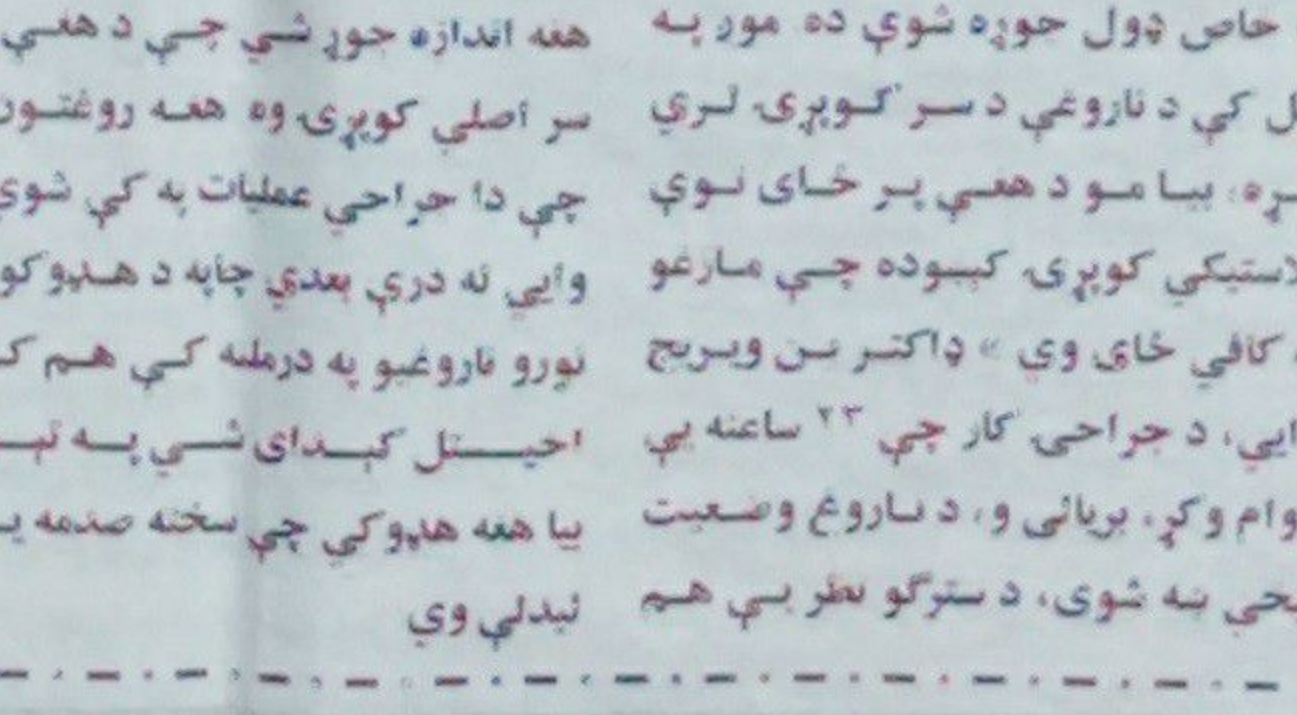 خاص ډول جوړه شوې ده موږ په
کې د ناروغې د سر کوپړۍ لرې
بیا مو د هغې پر ځای نوې
کوپړۍ کېښوده چې مارغو
کافي ځای وي » ډاکتر بن ویریج
وایي، د جراحۍ کار چې ۲۳ ساعته یې
دوام وکړ، بریالی و، د ناروغ وضعیت
ښه شوی، د سترگو نظر یې هم
هغه اندازه جوړ شي چې د هغې
سر اصلي کوپړۍ وه هغه روغتون
چې دا جراحي عملیات په کې شوي
وایي له درې بعدي چاپه د هډوکو
نورو ناروغیو په درملنه کې هم
اخیستل کېدای شي په تېره
بیا هغه هډوکي چې سخته صدمه
لیدلې وي